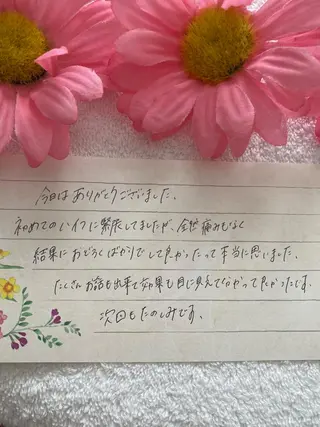 今日はありがとうございました。
初めてのハイフに緊張してましたが、全然痛みもなく
結果におどろくばかりでして良かったって本当に思いました。
たくさんお話も出来て効果も目に見えて分かって良かったです。
次回もたのしみです。